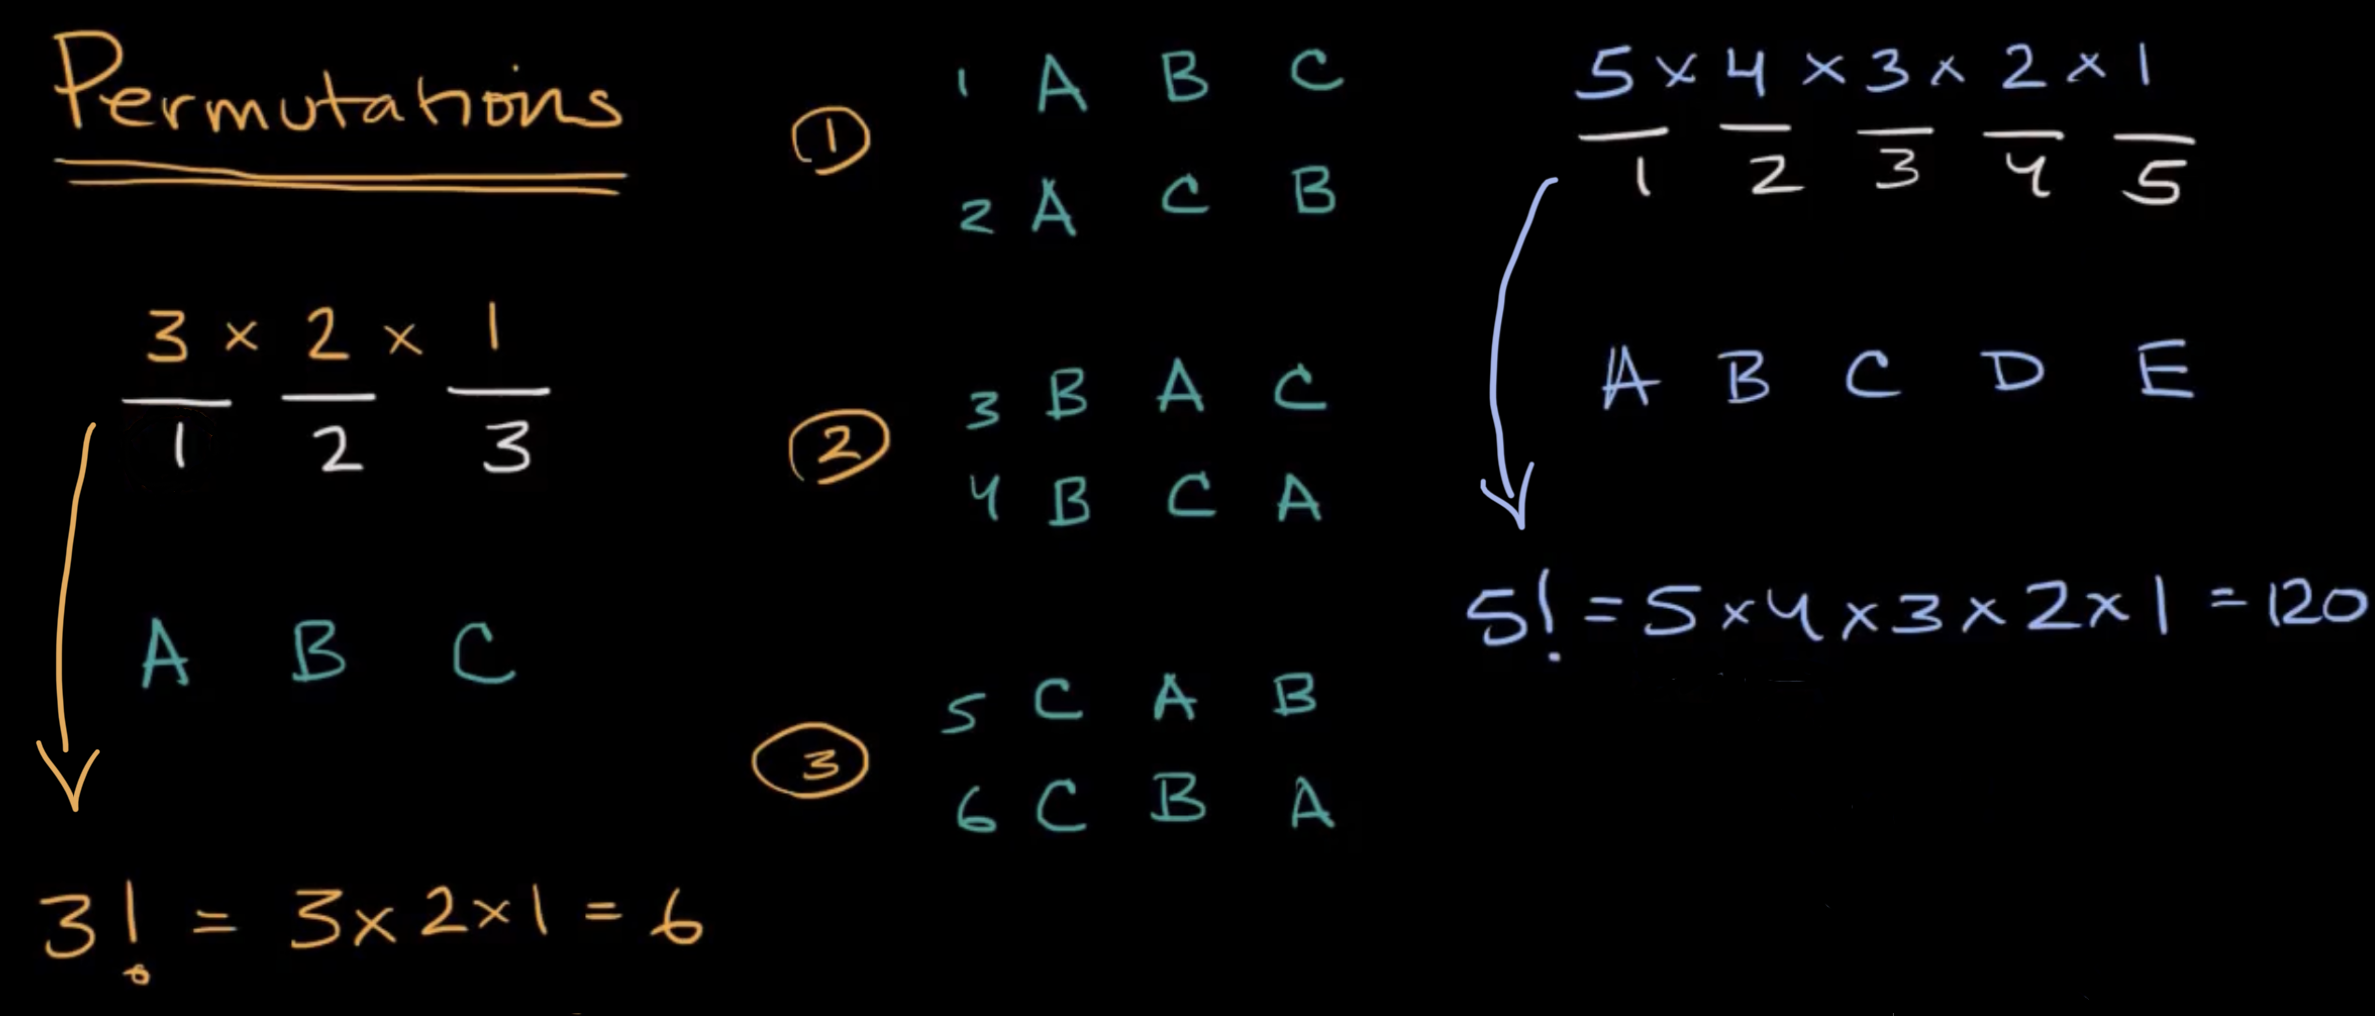 Permutations
3 × 2 × 1
1 2 3
A B C
3! = 3 × 2 × 1 = 6
1
1 A B C
2 A C B
2
3 B A C
4 B C A
3
5 C A B
6 C B A
5 × 4 × 3 × 2 × 1
1 2 3 4 5
A B C D E
5! = 5 × 4 × 3 × 2 × 1 = 120